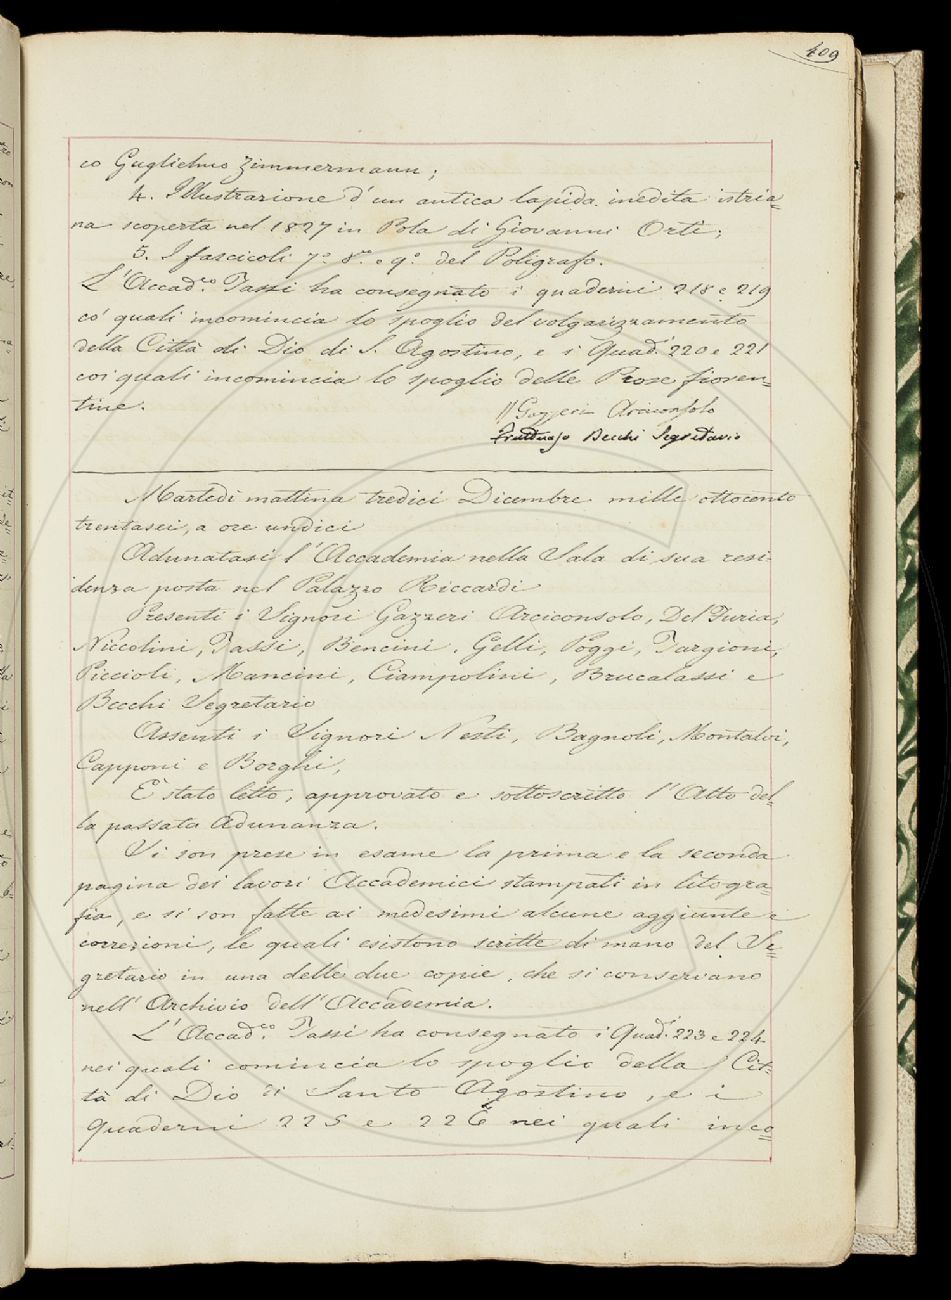 409
co Guglielmo Zimmermann;
4. Illustrazione d'un antica lapida inedita istria=
na scoperta nel 1827 in Pola di Giovanni Orti;
5. I fascicoli 7.° 8.° e 9.° del Poligrafo.
L'Accad.co Tassi ha consegnato i quaderni 218 e 219
co' quali incomincia lo spoglio del volgarizzamento
della Città di Dio di S. Agostino, e i Quad.i 220 e 221
coi quali incomincia lo spoglio delle Prose fioren=
tine.
Gazzeri Arciconsolo
Fruttuoso Becchi Segretario
Martedì mattina tredici Dicembre mille ottocento
trentasei, a ore undici
Adunatasi l'Accademia nella Sala di sua resi-
denza posta nel Palazzo Riccardi
Presenti i Signori Gazzeri Arciconsolo, Del Furia,
Niccolini, Tassi, Bencini, Gelli, Poggi, Targioni,
Piccioli, Mancini, Ciampolini, Brucalassi e
Becchi Segretario
Assenti i Signori Nesti, Bagnoli, Montalvi,
Capponi e Borghi,
È stato letto, approvato e sottoscritto l'Atto del=
la passata Adunanza.
Si son prese in esame la prima e la seconda
pagina dei lavori Accademici stampati in litogra=
fia, e si son fatte ai medesimi alcune aggiunte e
correzioni, le quali esistono scritte di mano del Se=
gretario in una delle due copie, che si conservano
nell'Archivio dell'Accademia.
L'Accad.co Tassi ha consegnato i Quad.i 223 e 224
nei quali comincia lo spoglio della Cit=
tà di Dio di Santo Agostino, e i
quaderni 225 e 226 nei quali inco=